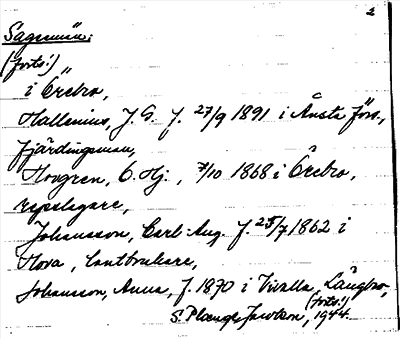 2
Sagesmän:
(forts.)
i Örebro,
Hallenius, J. G. f. 27/9 1891 i Ånsta förs.,
fjärdingsman,
Hovgren, C. Hj., 7/10 1868 i Örebro,
repslagare,
Johansson, Carl-Aug. f. 25/7 1862 i
Hova, lantbrukare,
Johansson, Anna, f. 1870 i Vivalla, Längbro,
(forts.)
S. Jacobson, 1944.